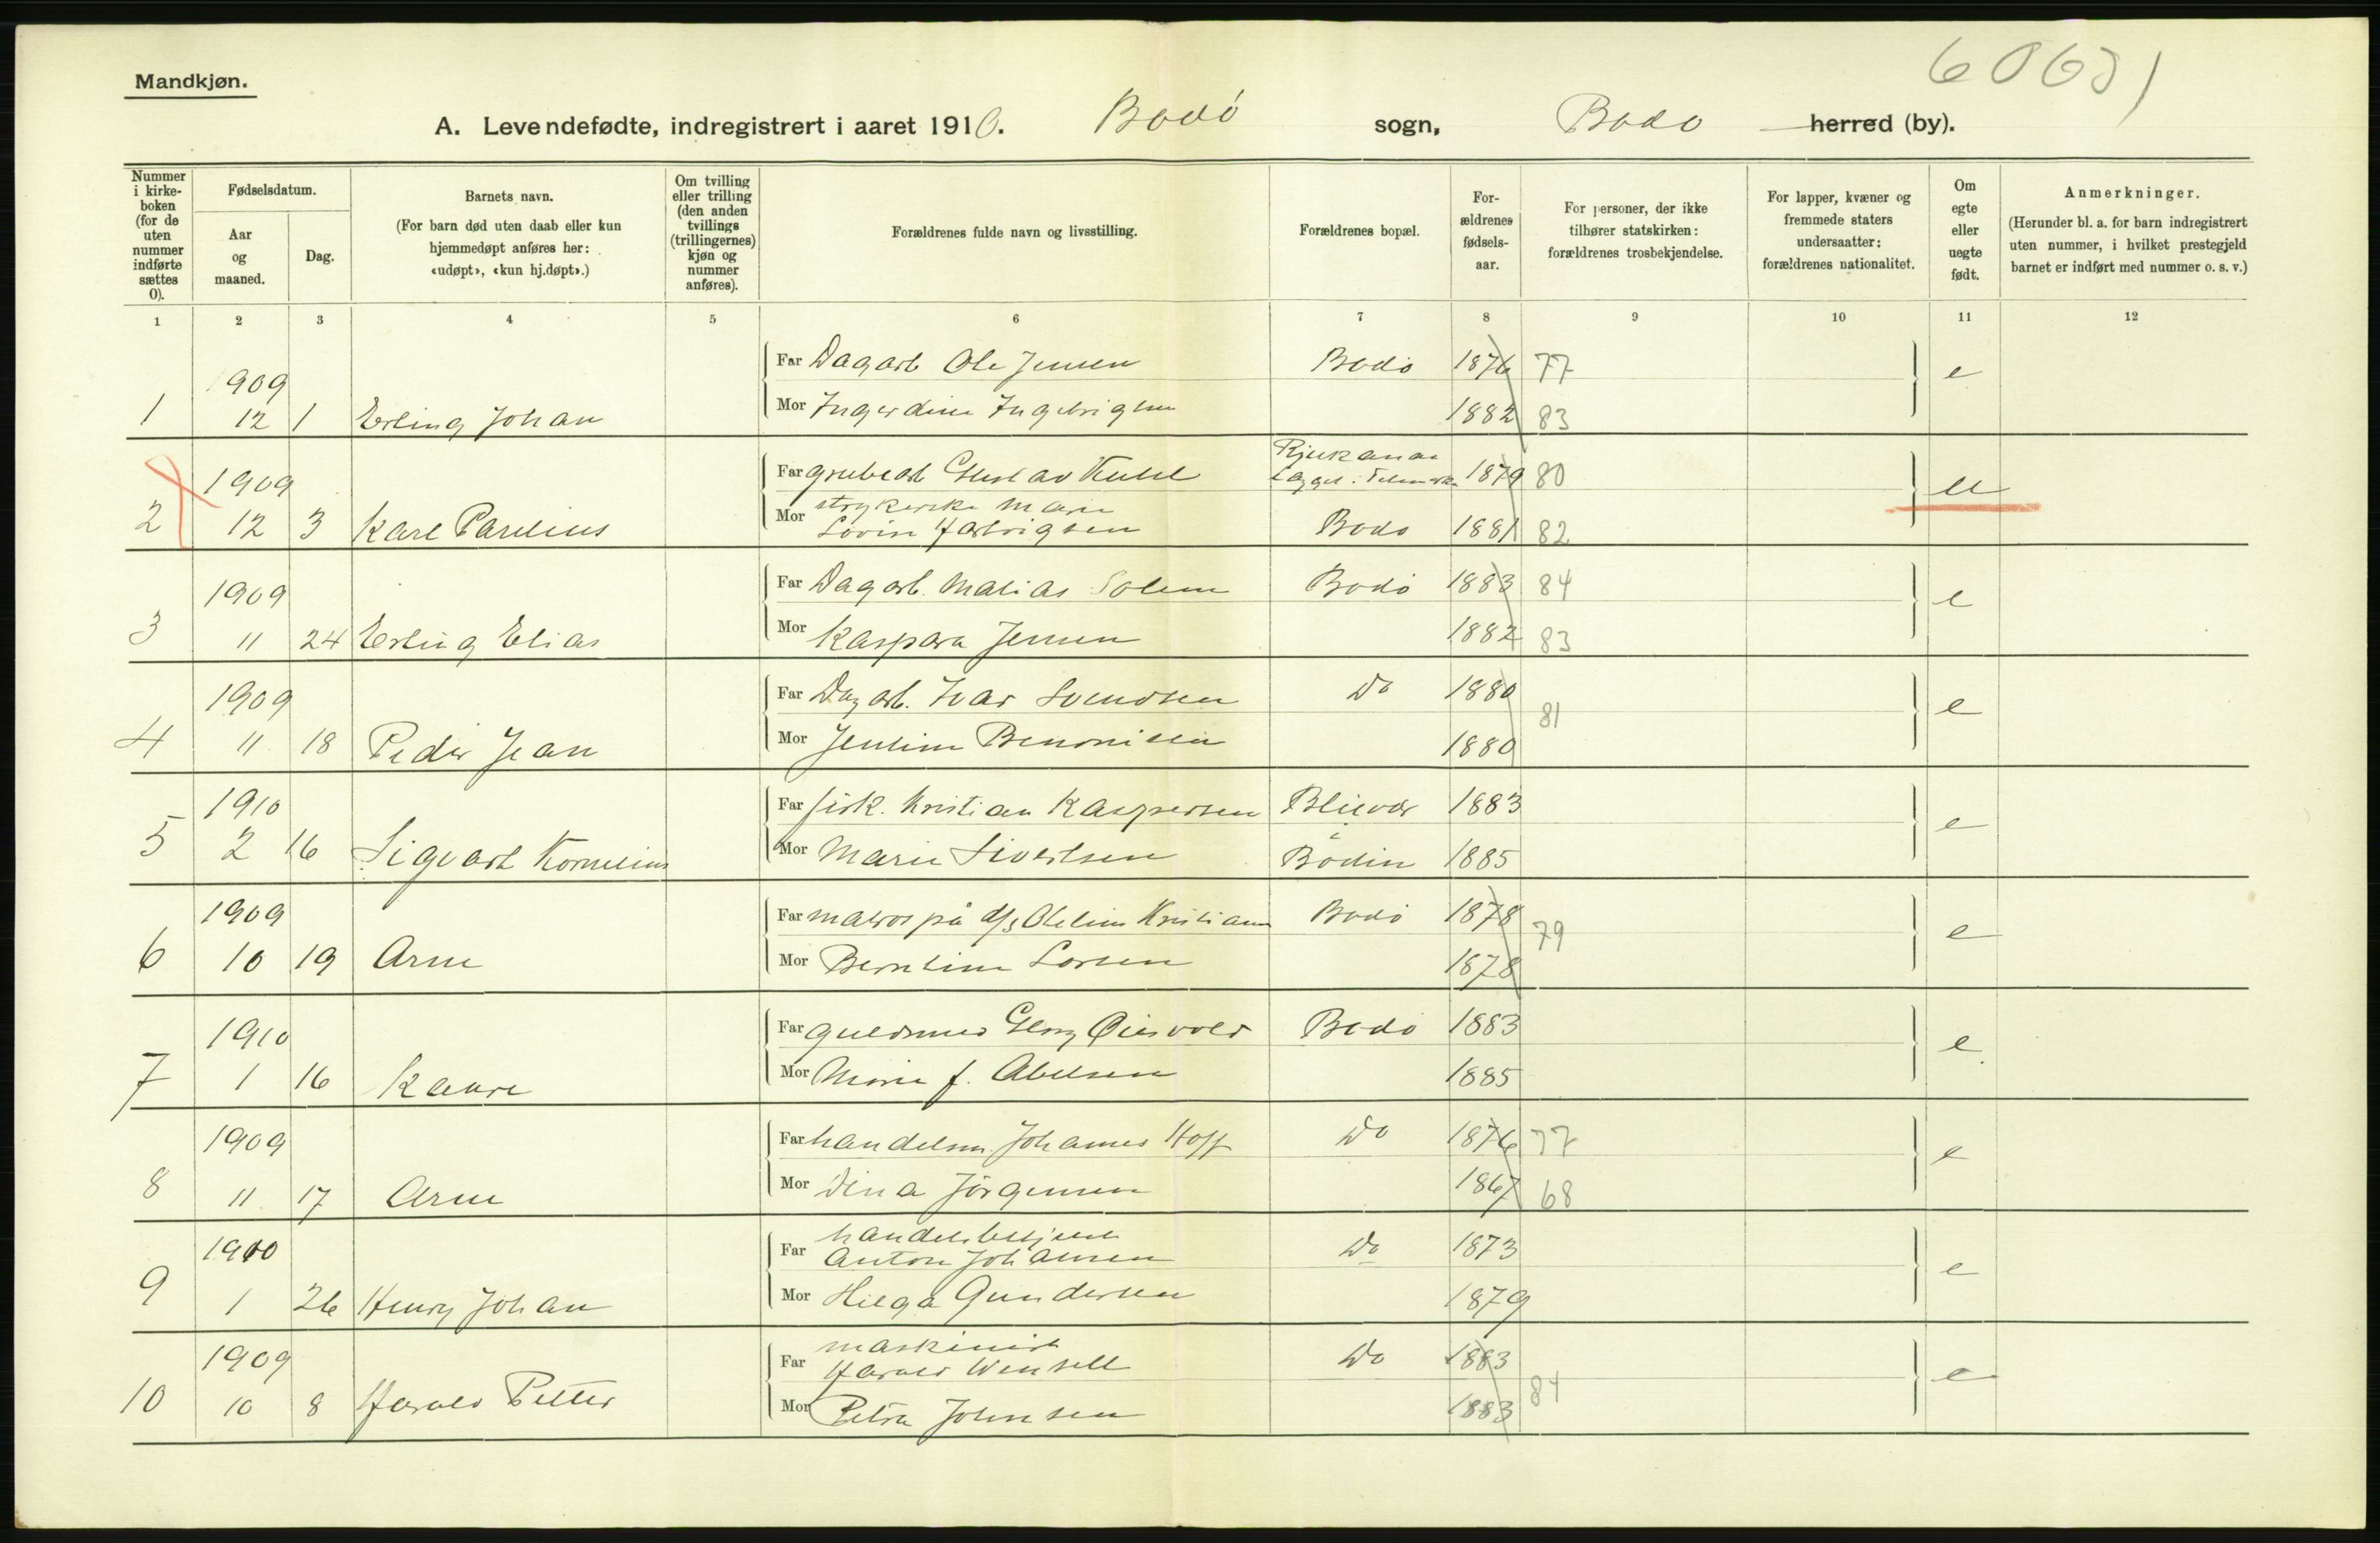 Mandkjøn.
A. Levendefødte, indregistrert i aaret 1910. Bodø sogn, Bodø herred (by).
Nummer i kirkeboken (for de uten nummer indførte sættes 0).
Fødselsdatum.
Aar og maaned.
Dag.
Barnets navn.
(For barn død uten daab eller kun hjemmedøpt anføres her: «udøpt», «kun hj.døpt».)
Om tvilling eller trilling (den anden tvillings (trillingernes) kjøn og nummer anføres).
Forældrenes fulde navn og livsstilling.
Forældrenes bopæl.
Forældrenes fødselsaar.
For personer, der ikke tilhører statskirken: forældrenes trosbekjendelse.
For lapper, kvæner og fremmede staters undersaatter: forældrenes nationalitet.
Om egte eller uegte født.
Anmerkninger.
(Herunder bl. a. for barn indregistrert uten nummer, i hvilket prestegjeld barnet er indført med nummer o. s. v.)
1 2 3 4 5 6 7 8 9 10 11 12
Far Dagarb Ole Jensen Bodø 1876 77
1909 e
1 12 1 Erling Johan Mor Ingerdine Ingebrigtsen 1882 83
Rjukanan
Far grubearb Gustav 1879 80
1909 u
strykerske Marie
2 12 3 Karl Parelius Mor Lovise Bodø 1881 82
Far Dagarb. Matias Solem Bodø 1883 84
1909 e
3 11 24 Erling Elias Mor Kaspara Jensen 1882 83
Far Dagarb. Ivar Svendsen Do 1880
1909 81 e
4 11 18 Peder Jean Mor Jentine Benonisen 1880
Far fisk. Kristian Kaspersen Blievær 1883
1910 e
5 2 16 Sigvart Kornelius Mor Marie Sivertsen Bodin 1885
Far matros på d/s Kristian Bodø 1878
1909 79 e
6 10 19 Arne Mor Berntine Larsen 1878
Far guldsmed Georg Bodø 1883
1910 e
7 1 16 Kaare Mor Marie f. Abelsen 1885
Far handelsm. Johannes Hoff Do 1876 77
1909 e
8 11 17 Arne Mor Dina Jørgensen 1867 68
handelsbetjent
1910 Far Anton Johansen Do 1873
e
9 1 26 Henry Johan Mor Helga Gundersen 1879
maskinist
1909 Far Harald Wensell Do 1883
84 e
10 10 8 Harald Petter Mor Petra Johnsen 1883